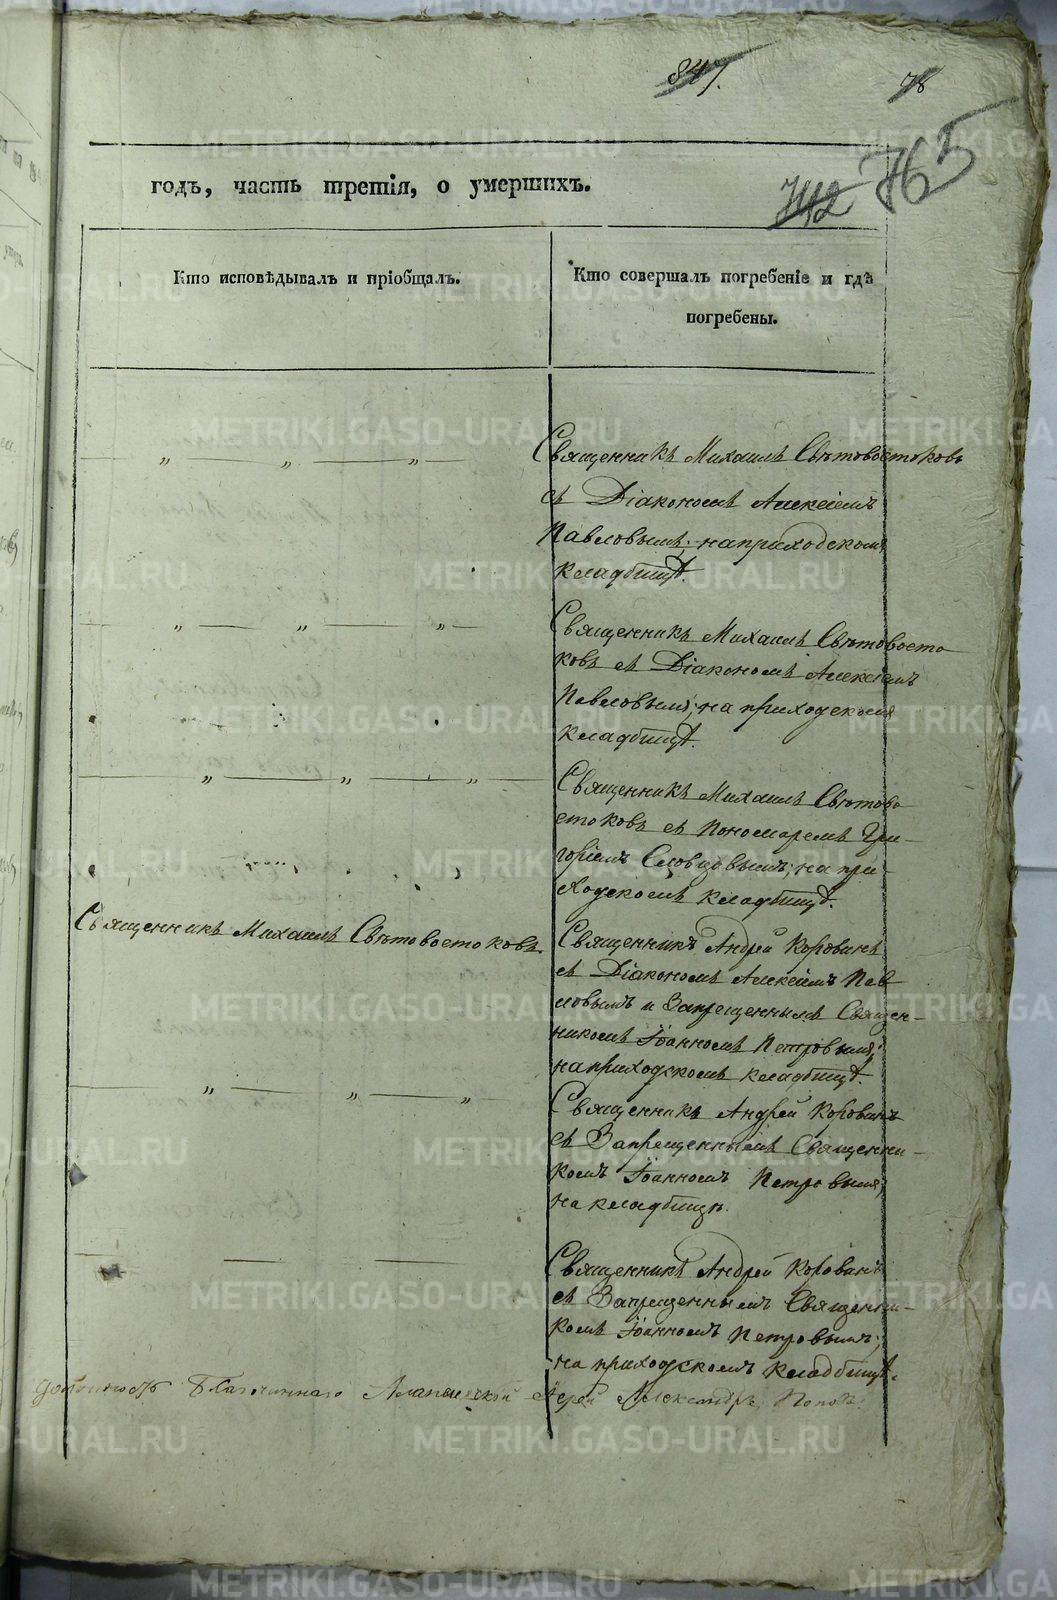 847.
78
742 765
годъ, часть третія, о умершихъ.
Кто исповѣдывалъ и пріобщалъ.
Кто совершалъ погребеніе и гдѣ
погребены.
— „ — „ — „ —
Священникъ Михаилъ Свѣтовостоковъ
съ Діакономъ Алексіемъ
Павловымъ; на приходскомъ
кладбищѣ.
— „ — „ — „ —
Священникъ Михаилъ Свѣтовосто
ковъ съ Діакономъ Алексіемъ
Павловымъ; на приходскомъ
кладбищѣ.
— „ — „ — „ —
Священникъ Михаилъ Свѣтово
стоковъ съ Пономаремъ Гри-
горіемъ Словцовымъ; на при-
ходскомъ кладбищѣ.
Священникъ Михаилъ Свѣтовостоковъ.
Священникъ Андрей Коровинъ
съ Діакономъ Алексіемъ Пав
ловымъ и Запрещеннымъ Священ-
никомъ Іоанномъ Петровымъ;
на приходскомъ кладбищѣ.
— „ — „ — „ —
Священникъ Андрей Коровинъ
съ Запрещеннымъ Священни-
комъ Іоанномъ Петровымъ;
на кладбищѣ.
— — —
Священникъ Андрей Коровинъ
съ Запрещеннымъ Священни-
комъ Іоанномъ Петровымъ;
на приходскомъ кладбищѣ.
должность Благочиннаго Алапаевскій Іерей Александръ Поповъ
METRIKI.GASO-URAL.RU